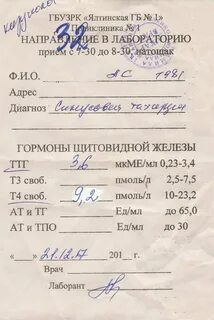 ГБУЗРК «Ялтинская ГБ № 1»
Поликлиника №
32
НАПРАВЛЕНИЕ В ЛАБОРАТОРИЮ
прием с 7-30 до 8-30, натощак
Ф.И.О. АС 1981
Адрес
Диагноз Синусовая тахикардия
ГОРМОНЫ ЩИТОВИДНОЙ ЖЕЛЕЗЫ
ТТГ 3,6 мкМЕ/мл 0,23-3,4
Т3 своб. пмоль/л 2,5-7,5
Т4 своб. 9,2 пмоль/л 10-23,2
АТ и ТГ Ед/мл до 65,0
АТ и ТПО Ед/мл до 30
« 21.12.17 201 г.
Врач
Лаборант